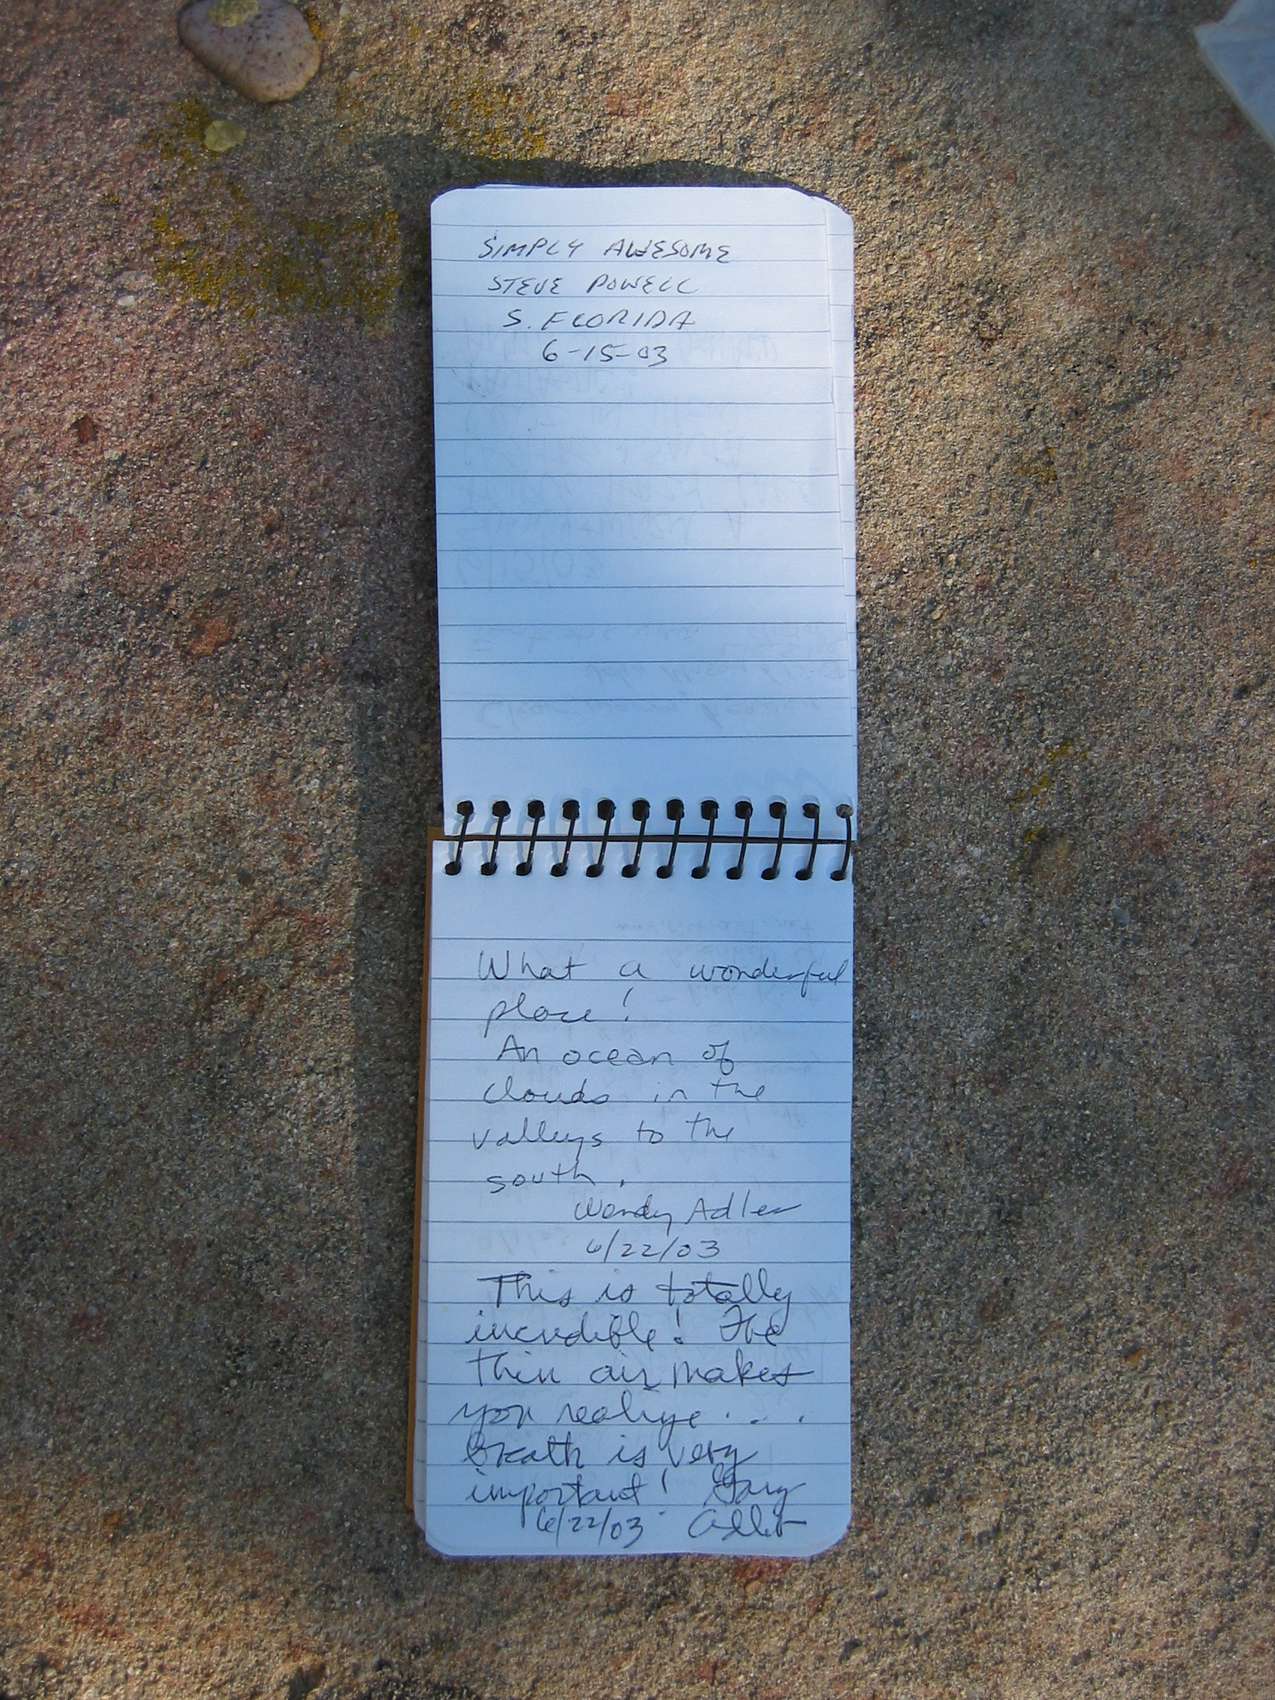 SIMPLY AWESOME
STEVE POWELL
S. FLORIDA
6-15-03
What a wonderful
place!
An ocean of
clouds in the
valleys to the
south.
Wendy Adler
6/22/03
This is totally
incredible! The
thin air makes
you realize . . .
breath is very
important! Gary
6/22/03